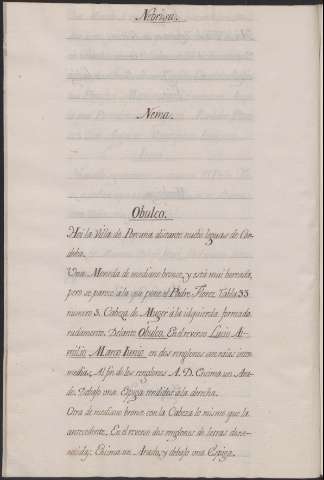 Nebrisa.
Nema.
Obulco.
Hoi la Villa de Porcuna distante nuebe leguas de Cor-
doba.
Una Moneda de mediano bronce, y está mui borrada,
pero se parece á la que pone el Padre Florez Tabla 33
numero 3. Cabeza de Muger á la idquierda forma da
radamente. Delante Obulco. En el reverso Lucio Ai-
milio Marco Iunio, en dos renglones con raias inter
medias, Al fin de los renglones A. D. Encima un Ara-
do. Debajo una Espiga tendida á la derecha.
Otra de mediano bronce con la Cabeza lo mismo que la
antecedente. En el reverso dos renglones de letras desco-
nocidas. Encima un Arado, y debajo una Espiga.